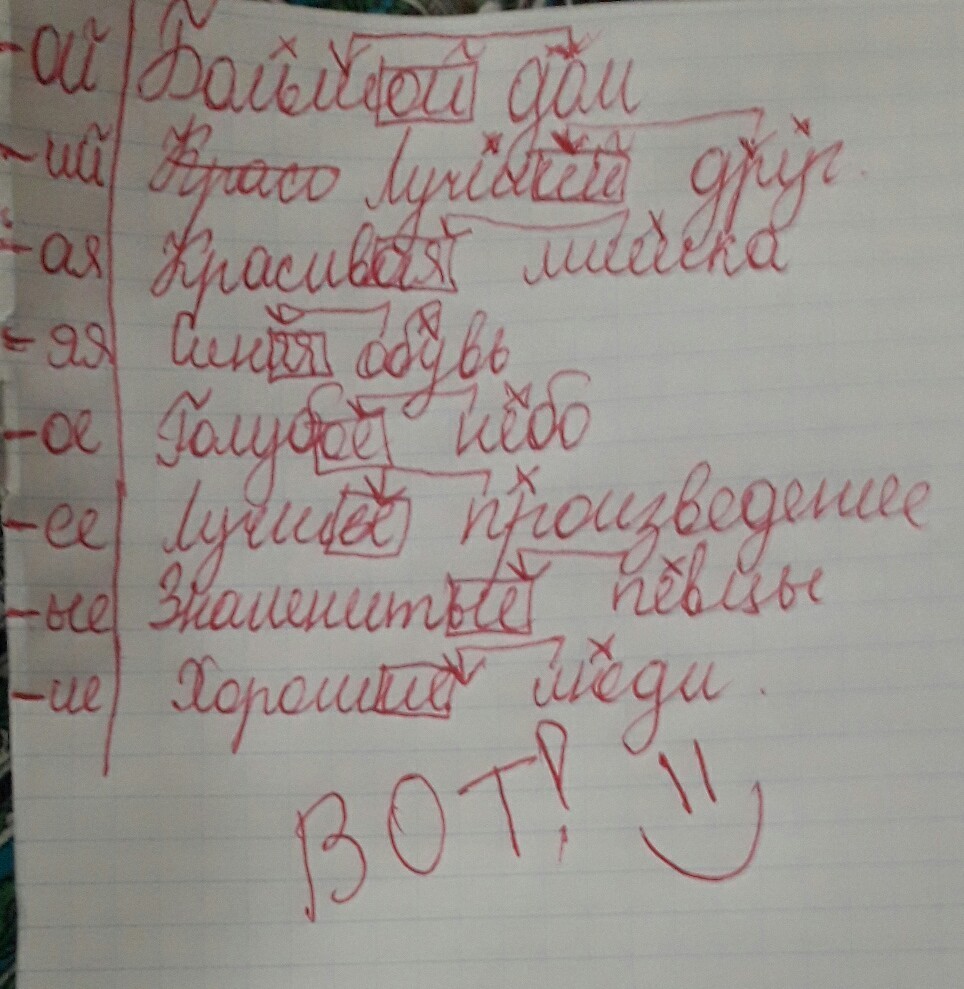 -ой Большой дом
-ий Красо Лучший друг.
-ая Красивая мишка
-яя Синяя обувь
-ое Голубое небо
-ее Лучшее произведение
-ые Знаменитые певцы
-ие Хорошие люди.
ВОТ!